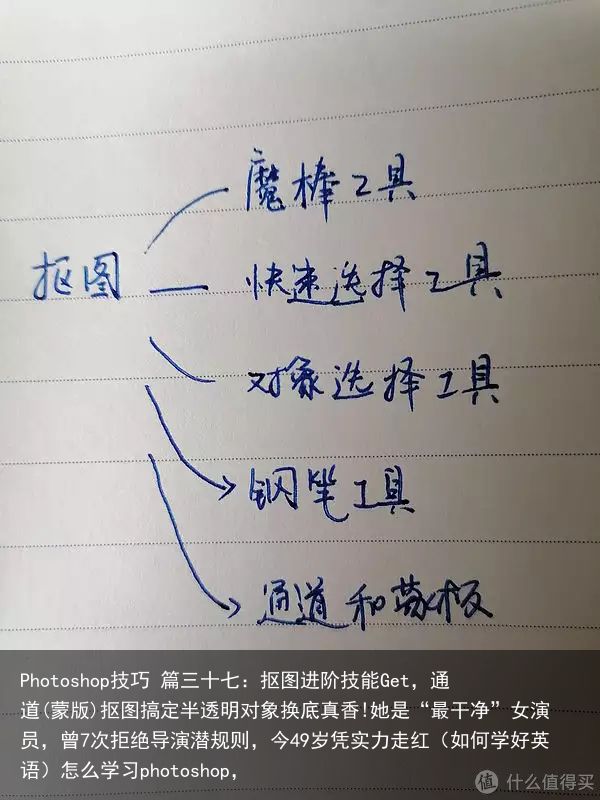 魔棒工具
抠图
快速选择工具
对象选择工具
钢笔工具
通道和蒙板
Photoshop技巧 篇三十七：抠图进阶技能Get，通
道(蒙版)抠图搞定半透明对象换底真香!她是“最干净”女演
员，曾7次拒绝导演潜规则，今49岁凭实力走红（如何学好英
语）怎么学习photoshop，
值 什么值得买